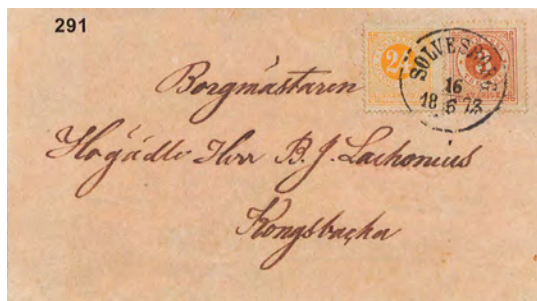 291
24
SÖLVESBORG
16
18 6 73
Borgmästaren
Högädle Herr B. J. Lachonius
Kongsbacka